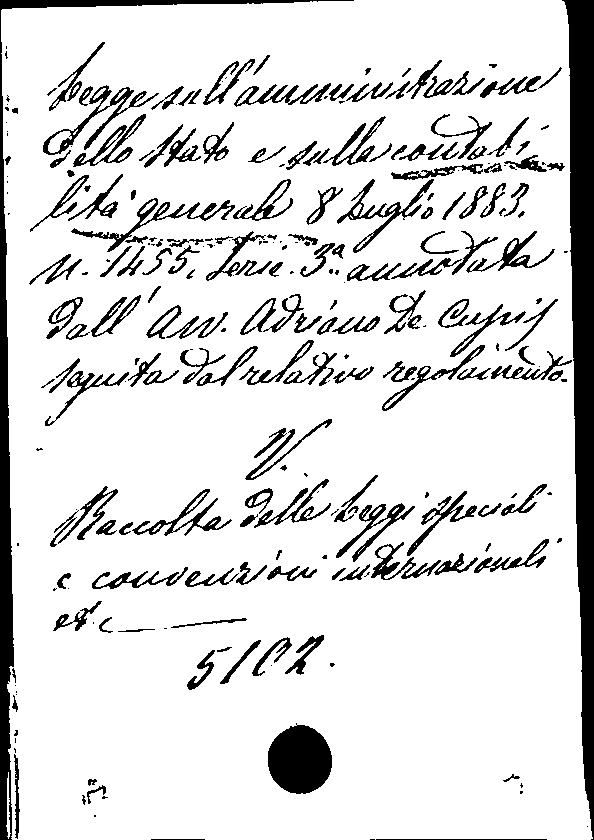 Legge sull'amministrazione
dello Stato e sulla contabi
lità generale 8 Luglio 1883.
n. 1455, Serie 3ª annotata
dall' Avv. Adriano De Cupis
seguita dal relativo regolamento.
V.
Raccolta delle Leggi speciali
e convenzioni internazionali
etc
5102.